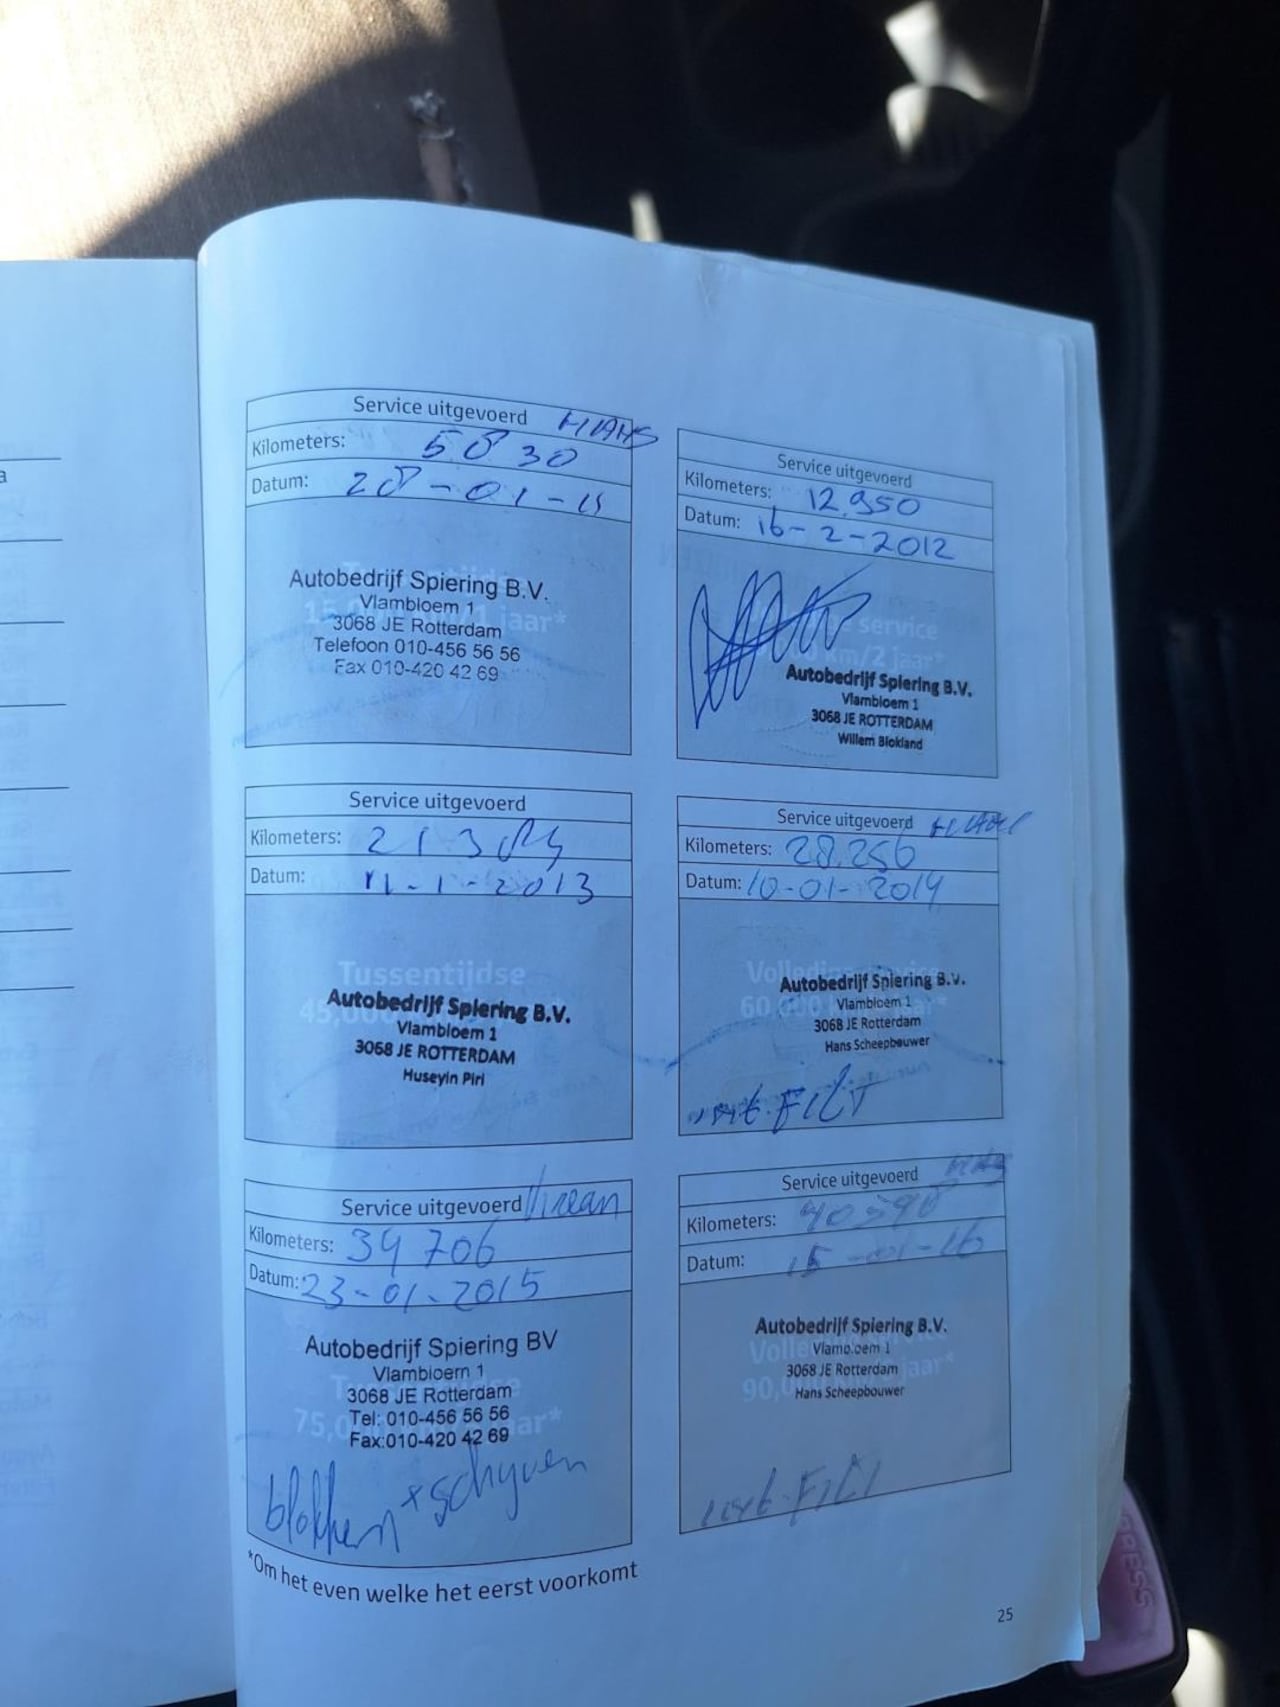 Service uitgevoerd HANS
Kilometers: 5830
Datum: 28-01-11
Autobedrijf Spiering B.V.
Vlambloem 1
15, 1 jaar*
3068 JE Rotterdam
Telefoon 010-456 56 56
Fax 010-420 42 69
Service uitgevoerd
Kilometers: 12.950
Datum: 16-2-2012
service
km/2 jaar*
Autobedrijf Spiering B.V.
Vlambloem 1
3068 JE ROTTERDAM
Willem Blokland
Service uitgevoerd
Kilometers:
Datum: 11-1-2013
Tussentijdse
45,000
Autobedrijf Spiering B.V.
Vlambloem 1
3068 JE ROTTERDAM
Huseyin Piri
Service uitgevoerd
Kilometers: 28.256
Datum: 10-01-2014
60,000
Autobedrijf Spiering B.V.
Vlambloem 1
3068 JE Rotterdam
Hans Scheepbouwer
Service uitgevoerd
Kilometers: 34706
Datum: 23-01-2015
Autobedrijf Spiering BV
Vlambloem 1
3068 JE Rotterdam
Tel: 010-456 56 56
75, jaar*
Fax:010-420 42 69
blokken + schyven
Service uitgevoerd
Kilometers: 40590
Datum: 15-01-16
Autobedrijf Spiering B.V.
Vlambloem 1
3068 JE Rotterdam
90, jaar*
Hans Scheepbouwer
*Om het even welke het eerst voorkomt
25